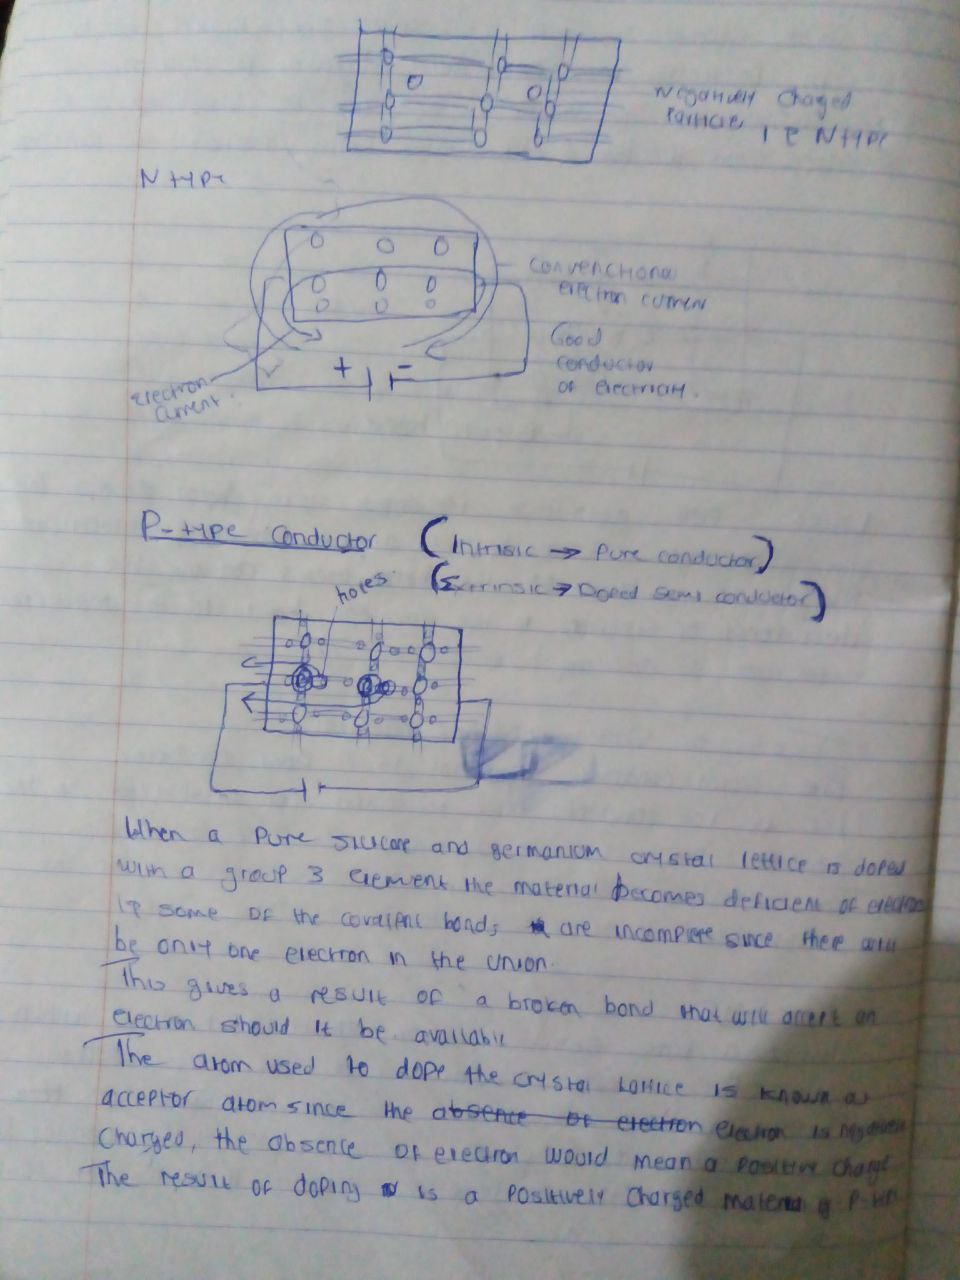 Negatively charged
particle I E N type
N type
convenctiona
electron current
+ -
Good
conductor
of electricit.
Electron
current.
P-type conductor (Intrisic → Pure conductor)
(Extrinsic → Doped semi conductor)
holes
When a pure silicone and germanium crystal lettice is doped
with a group 3 element the material becomes deficient of electron
IF some of the covalent bonds are incomplete since there will
be only one electron in the union.
This gives a result of a broken bond that will accept an
electron should it be available
The atom used to dope the crystal lattice is known as
acceptor atom since the absence of electron electron is negatively
charged, the absence of electron would mean a positive charge
The result of doping is a positively charged material P-type